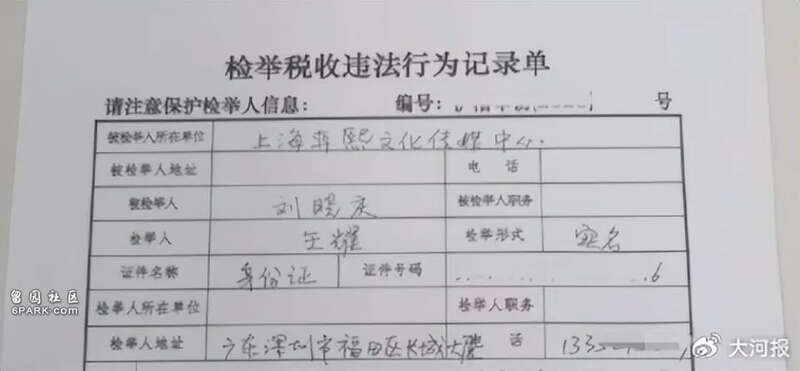 检举税收违法行为记录单
请注意保护检举人信息： 编号： 号
被检举人所在单位 上海 熙文化传媒中心
被检举人地址 电话
被检举人 刘晓庆 被检举人职务
检举人 王耀 检举形式 实名
证件名称 身份证 证件号码 6
检举人所在单位 检举人职务
检举人地址 广东深圳市福田区长城大厦 话 133
留园社区
6PARK.COM
大河报